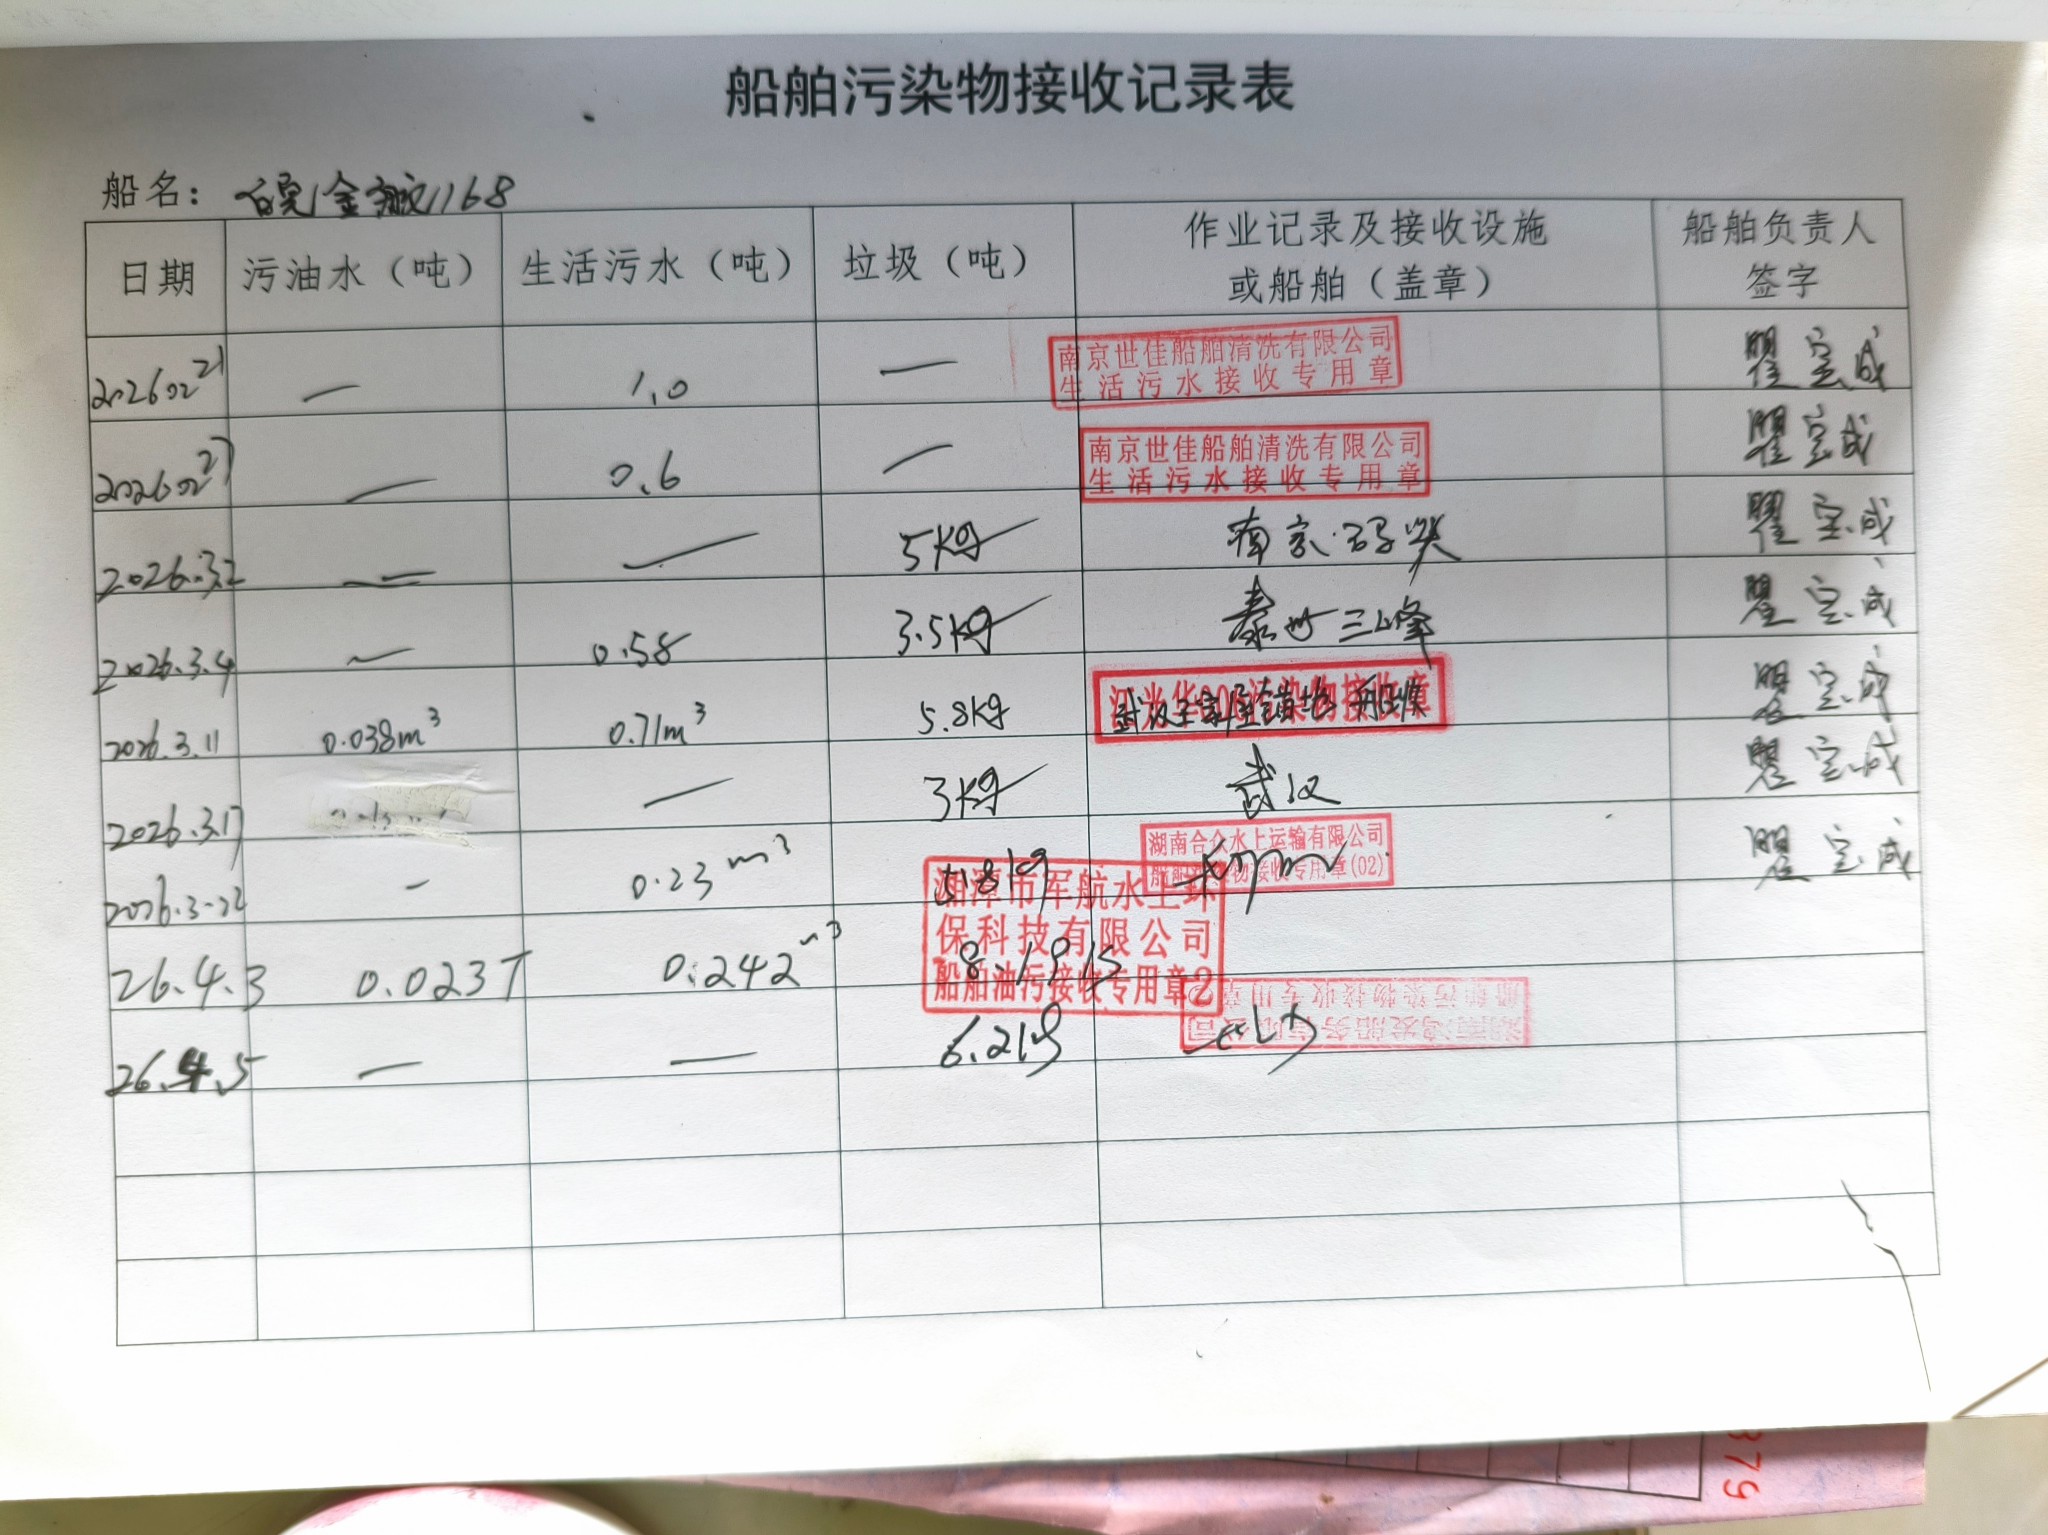 船舶污染物接收记录表
船名：皖金航1168
日期 污油水（吨） 生活污水（吨） 垃圾（吨） 作业记录及接收设施或船舶（盖章） 船舶负责人签字
20260221 — 1.0 — 南京世佳船舶清洗有限公司 生活污水接收专用章 瞿宝成
20260227 — 0.6 — 南京世佳船舶清洗有限公司 生活污水接收专用章 瞿宝成
2026.3.2 — — 5kg 南京码头 瞿宝成
2026.3.4 — 0.58 3.5kg 三峰 瞿宝成
2026.3.11 0.038m³ 0.71m³ 5.8kg 武汉 污染物接收章 瞿宝成
2026.3.17 — 3kg 武汉 瞿宝成
2026.3.22 — 0.23m³ 5.8kg 湖南合众水上运输有限公司 船舶污染物接收专用章(02) 瞿宝成
26.4.3 0.023T 0.242m³ 湘潭市军航水上环保科技有限公司 船舶油污接收专用章2
26.4.5 — — 船舶污染物接收专用章②
379